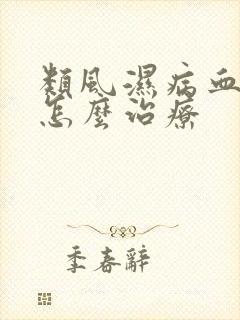 類風濕病血
怎麼治療
季春辭